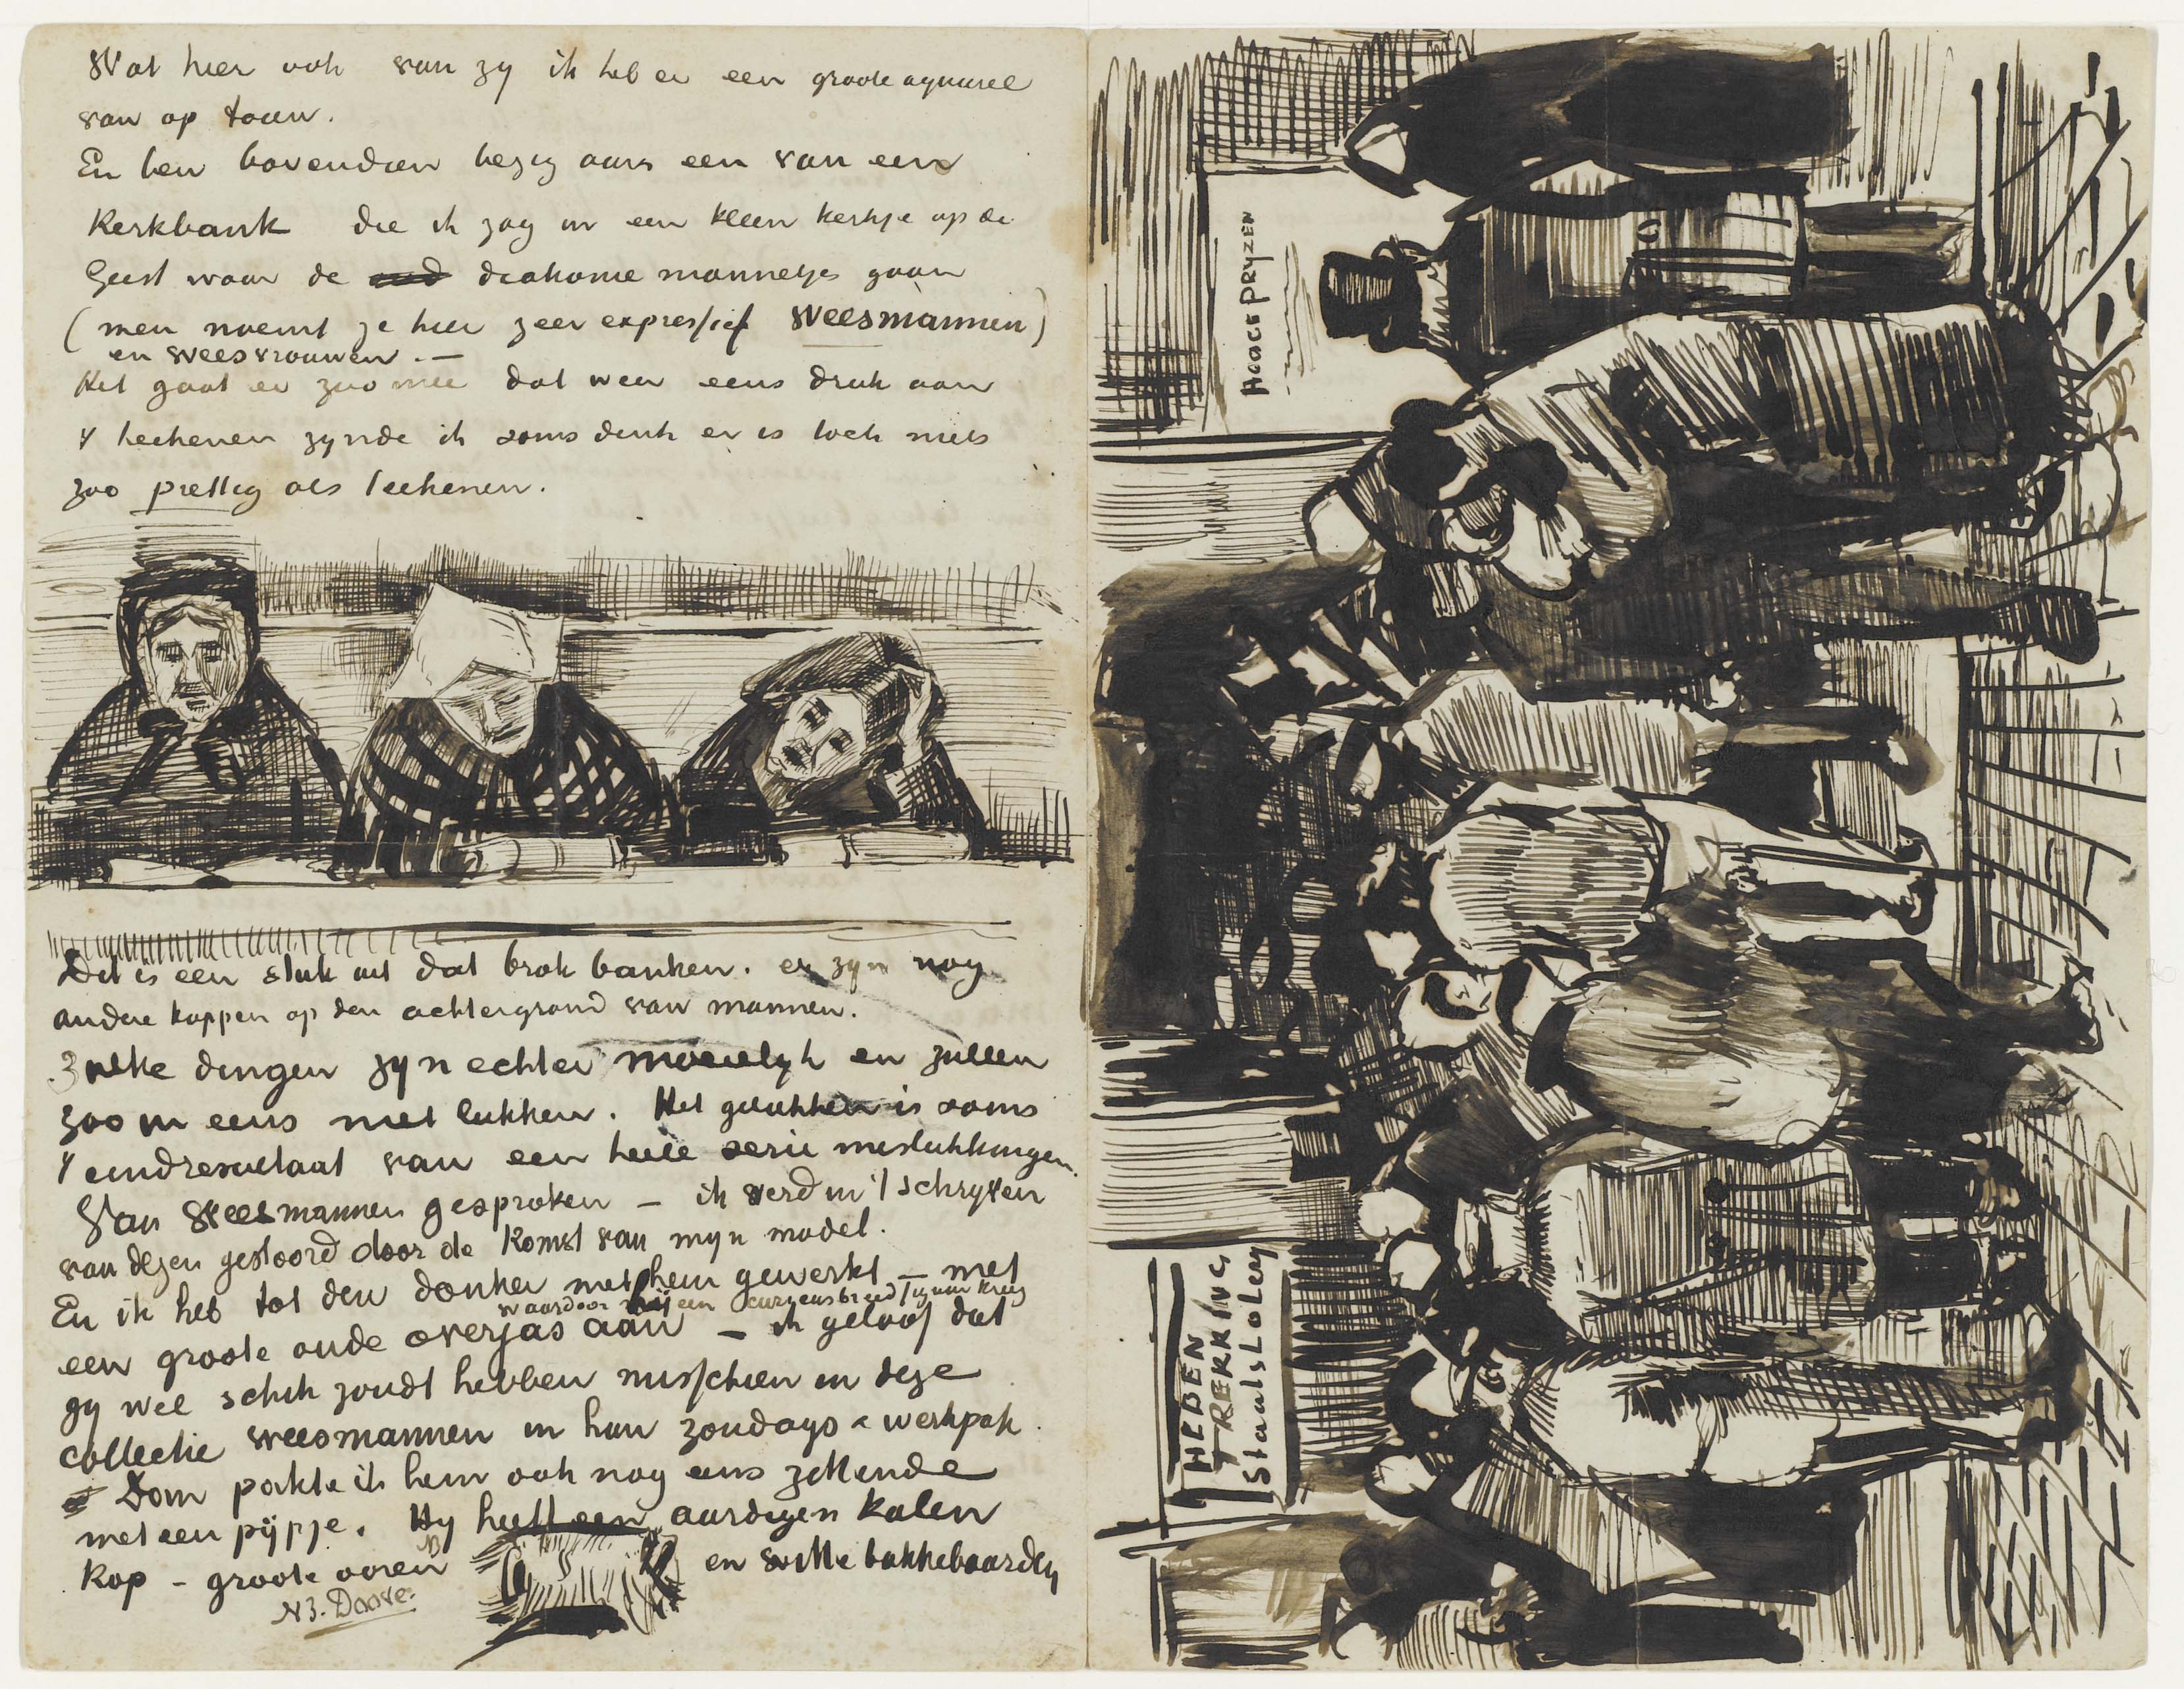 Wat hier ook van zy ik heb er een groote aquarel
van op touw.
En ben bovendien bezig aan een van een
Kerkbank die ik zag in een kleen kerkje op de
Geest waar de oud diakonie mannetjes gaan
(men noemt ze hier zeer expressief Weesmannen)
en weesvrouwen. —
Het gaat er zoo mee dat weer eens druk aan
't teekenen zynde ik soms denk er is toch niets
zoo prettig als teekenen.
Dit is een stuk uit dat brok banken. er zyn nog
andere koppen op den achtergrond van mannen.
Zulke dingen zyn echter moeielyk en zullen
zoo in eens niet lukken. Het gelukken is soms
't eindresultaat van een heele serie mislukkingen.
Van Weesmannen gesproken — ik werd in 't schryven
van dezen gestoord door de komst van myn model.
En ik heb tot den donker met hem gewerkt — met
waardoor hij een
een groote oude overjas aan — ik geloof dat
gy wel schik zoudt hebben misschien in deze
collectie weesmannen in hun zondags & werkpak.
Dan pakte ik hem ook nog eens zittende
met een pijpje. Hy heeft een aardigen kalen
kop – groote ooren
NB. Doove.
en witte bakkebaarden
HOOGE PRYZEN
HEDEN
TREKKING
StaatsLotery